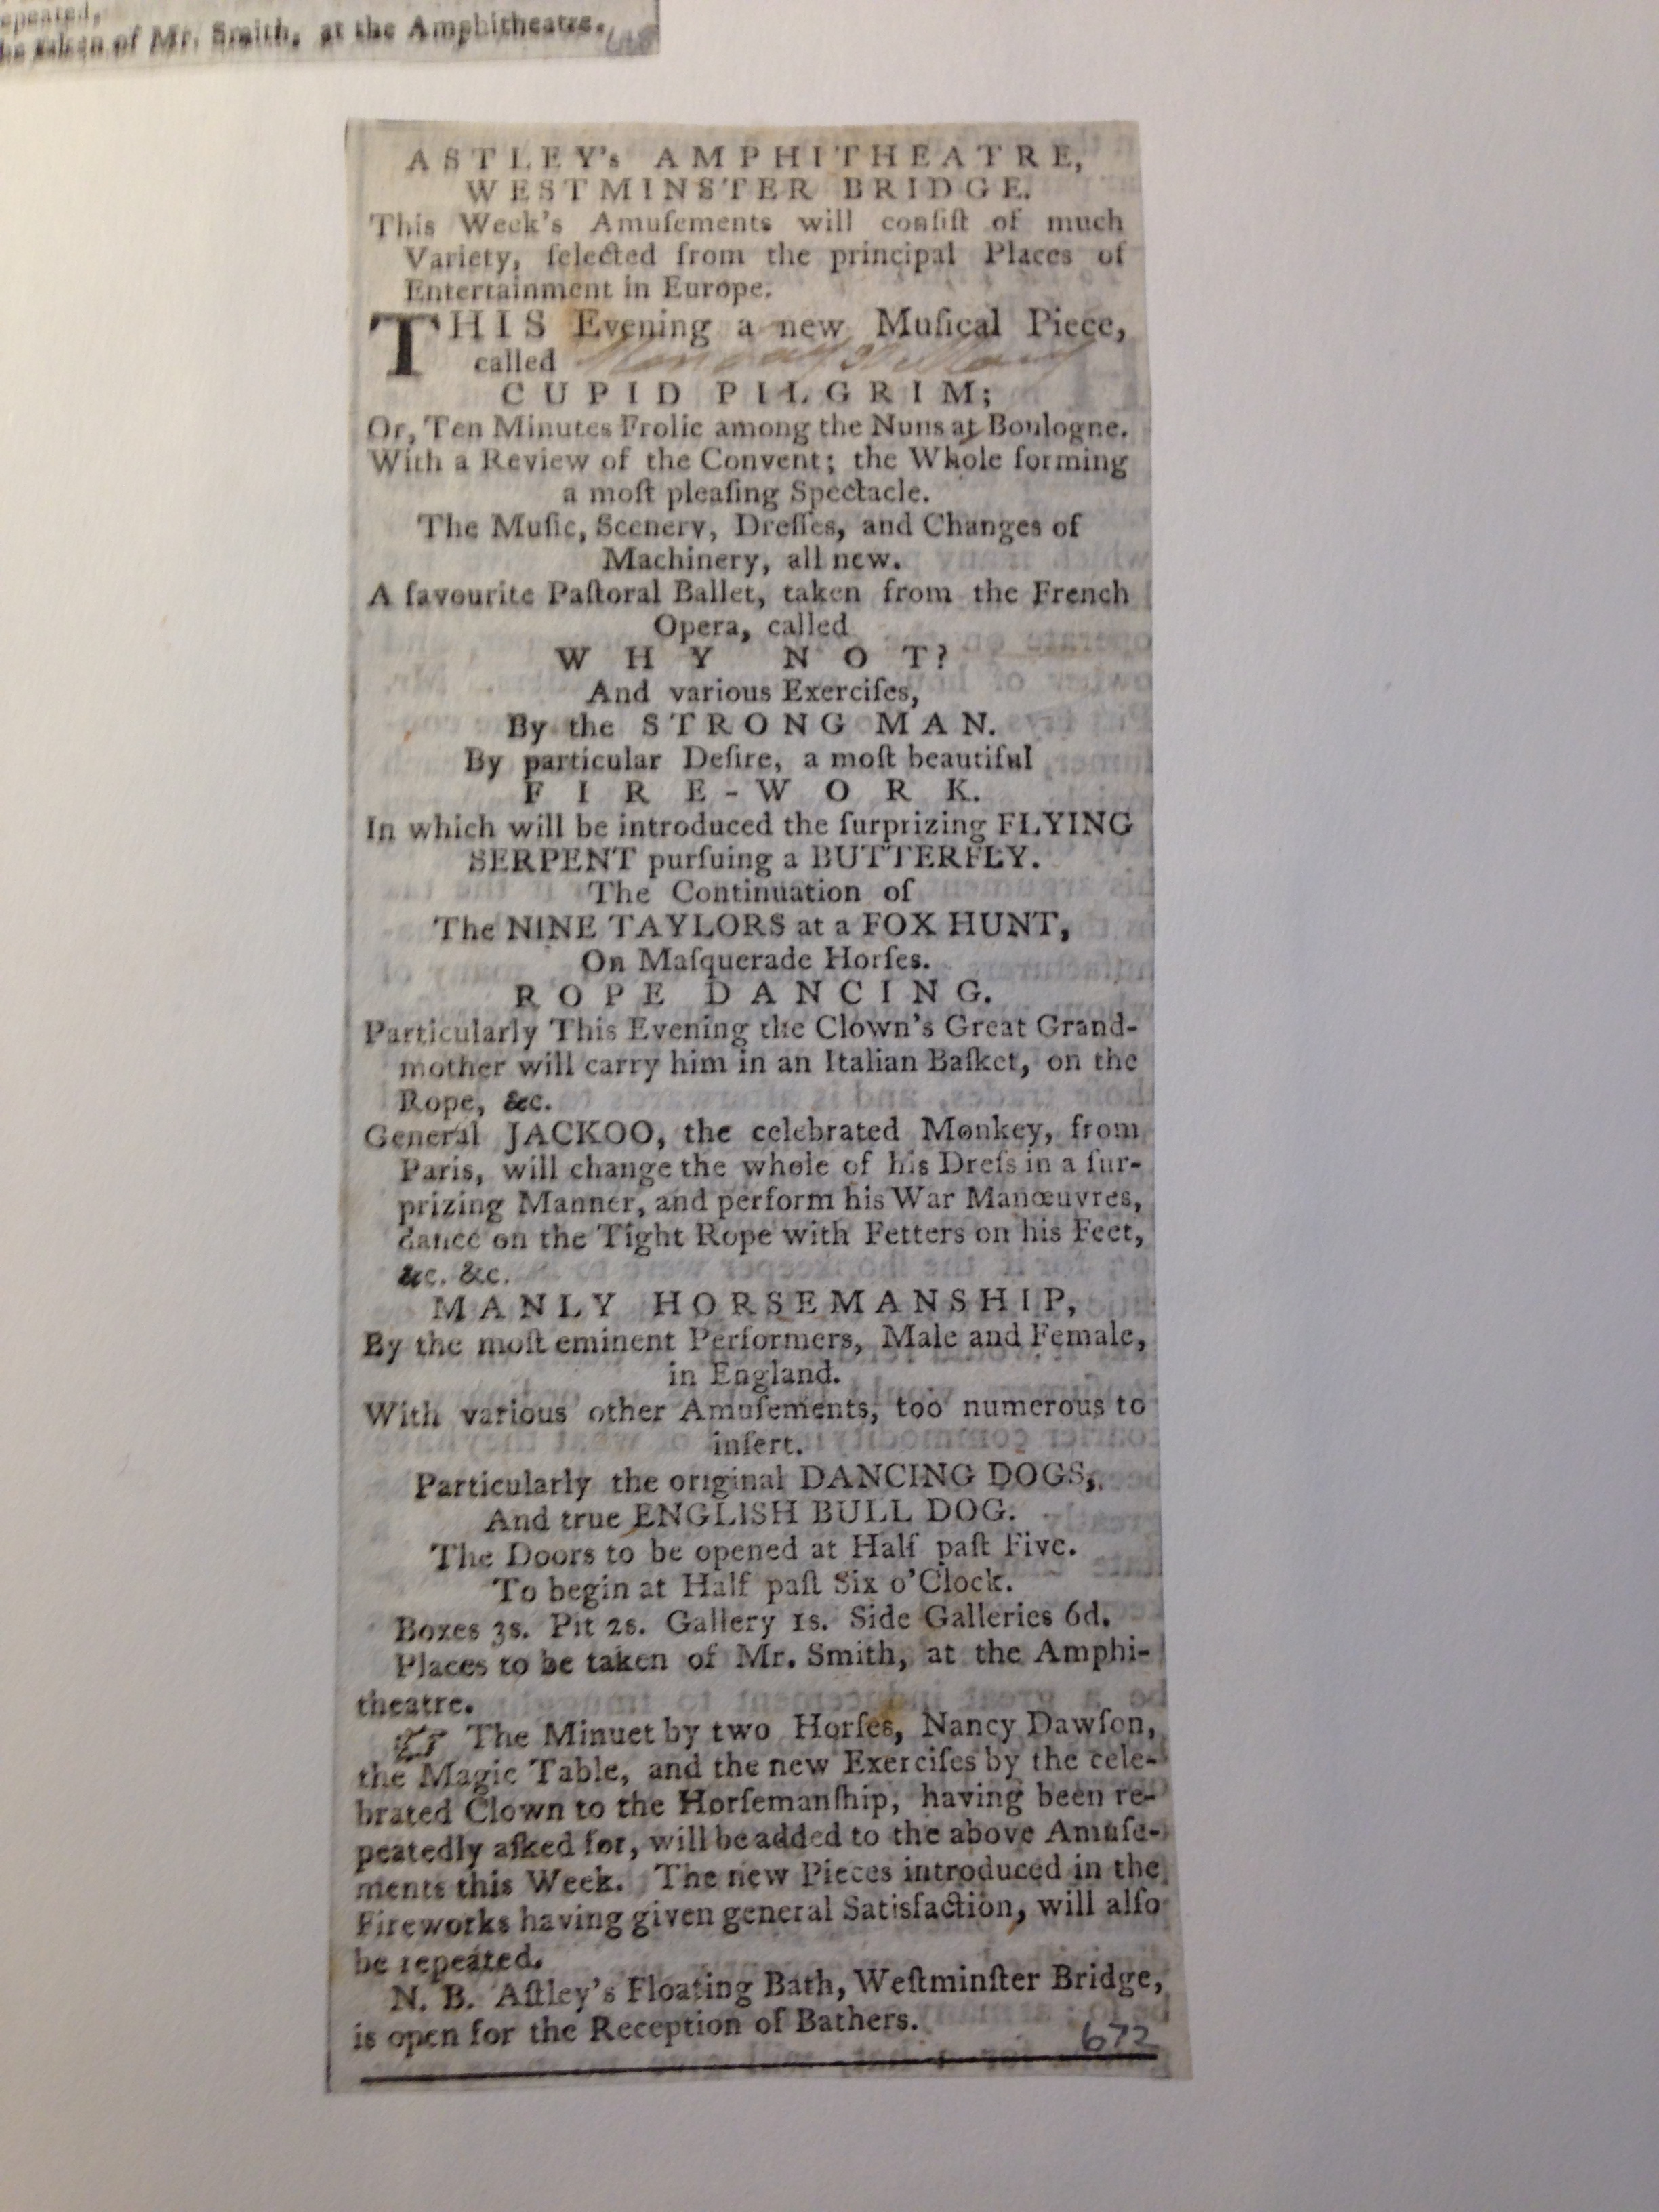 epeated,
be taken of Mr. Smith, at the Amphitheatre.
ASTLEY's AMPHITHEATRE,
WESTMINSTER BRIDGE.
This Week's Amuſements will conſiſt of much
Variety, ſelected from the principal Places of
Entertainment in Europe.
THIS Evening a new Muſical Piece,
called
CUPID PILGRIM;
Or, Ten Minutes Frolic among the Nuns at Boulogne.
With a Review of the Convent; the Whole forming
a moſt pleaſing Spectacle.
The Muſic, Scenery, Dreſſes, and Changes of
Machinery, all new.
A favourite Paſtoral Ballet, taken from the French
Opera, called
WHY NOT?
And various Exerciſes,
By the STRONG MAN.
By particular Deſire, a moſt beautiful
FIRE-WORK.
In which will be introduced the ſurprizing FLYING
SERPENT purſuing a BUTTERFLY.
The Continuation of
The NINE TAYLORS at a FOX HUNT,
On Maſquerade Horſes.
ROPE DANCING.
Particularly This Evening the Clown's Great Grand-
mother will carry him in an Italian Baſket, on the
Rope, &c.
General JACKOO, the celebrated Monkey, from
Paris, will change the whole of his Dreſs in a ſur-
prizing Manner, and perform his War Manœuvres,
dance on the Tight Rope with Fetters on his Feet,
&c. &c.
MANLY HORSEMANSHIP,
By the moſt eminent Performers, Male and Female,
in England.
With various other Amuſements, too numerous to
inſert.
Particularly the original DANCING DOGS,
And true ENGLISH BULL DOG.
The Doors to be opened at Half paſt Five.
To begin at Half paſt Six o'Clock.
Boxes 3s. Pit 2s. Gallery 1s. Side Galleries 6d.
Places to be taken of Mr. Smith, at the Amphi-
theatre.
☞ The Minuet by two Horſes, Nancy Dawſon,
the Magic Table, and the new Exerciſes by the cele-
brated Clown to the Horſemanſhip, having been re-
peatedly aſked for, will be added to the above Amuſe-
ments this Week. The new Pieces introduced in the
Fireworks having given general Satisfaction, will alſo
be repeated.
N. B. Aſtley's Floating Bath, Weſtminſter Bridge,
is open for the Reception of Bathers.
672